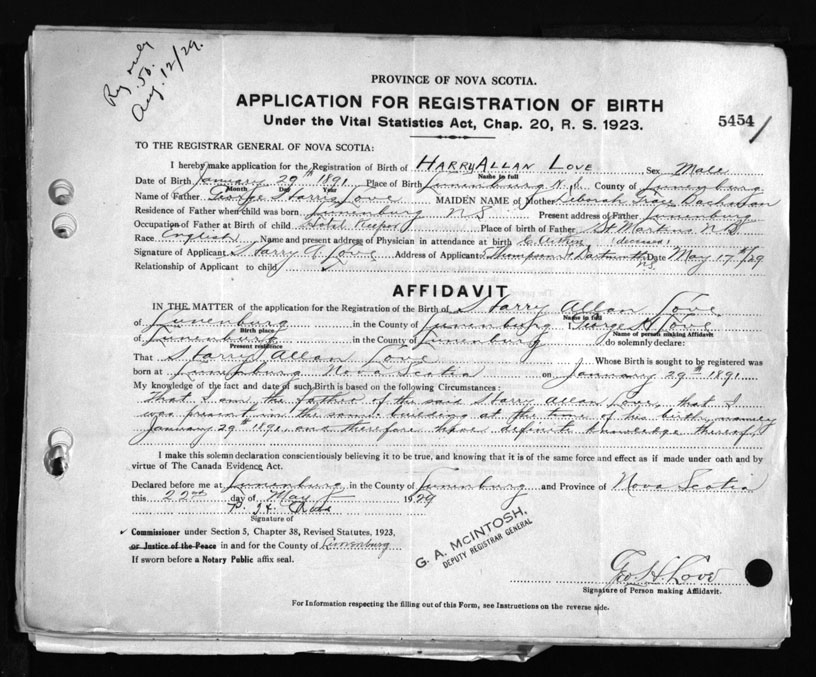 Reg only
.50.
Aug. 12/29.
PROVINCE OF NOVA SCOTIA.
APPLICATION FOR REGISTRATION OF BIRTH
Under the Vital Statistics Act, Chap. 20, R. S. 1923.
5454
TO THE REGISTRAR GENERAL OF NOVA SCOTIA:
I hereby make application for the Registration of Birth of HARRY ALLAN LOVE Sex Male
Name in full
Date of Birth January 29th 1891 Place of Birth Lunenburg N.S. County of Lunenburg
Month Day Year
Name of Father George Harris Love MAIDEN NAME of Mother Deborah Bachman
Residence of Father when child was born Lunenburg N S Present address of Father Lunenburg
Occupation of Father at Birth of child Hotel Keeper Place of birth of Father St Martins N B
Race English Name and present address of Physician in attendance at birth C. Aitken (deceased)
Signature of Applicant Harry A Love Address of Applicant Thompson St Dartmouth N.S. Date May 17th/29
Relationship of Applicant to child
AFFIDAVIT
IN THE MATTER of the application for the Registration of the Birth of Harry Allan Love
Name in full
of Lunenburg in the County of Lunenburg I, George H Love
Birth place Name of person making Affidavit
of Lunenburg in the County of Lunenburg do solemnly declare:
Present residence
That Harry Allan Love Whose Birth is sought to be registered was
born at Lunenburg Nova Scotia on January 29th 1891
My knowledge of the fact and date of such Birth is based on the following Circumstances:
that I am the father of the said Harry Allan Love, that I
was present in the same building at the time of his birth, namely
January 29th 1891, and therefore have definite knowledge thereof.
I make this solemn declaration conscientiously believing it to be true, and knowing that it is of the same force and effect as if made under oath and by
virtue of The Canada Evidence Act.
Declared before me at Lunenburg in the County of Lunenburg and Province of Nova Scotia
this 22nd day of May 1929
Signature of
Commissioner under Section 5, Chapter 38, Revised Statutes, 1923,
or Justice of the Peace in and for the County of Lunenburg
If sworn before a Notary Public affix seal.
G. A. McINTOSH,
DEPUTY REGISTRAR GENERAL
Geo H Love
Signature of Person making Affidavit.
For Information respecting the filling out of this Form, see Instructions on the reverse side.